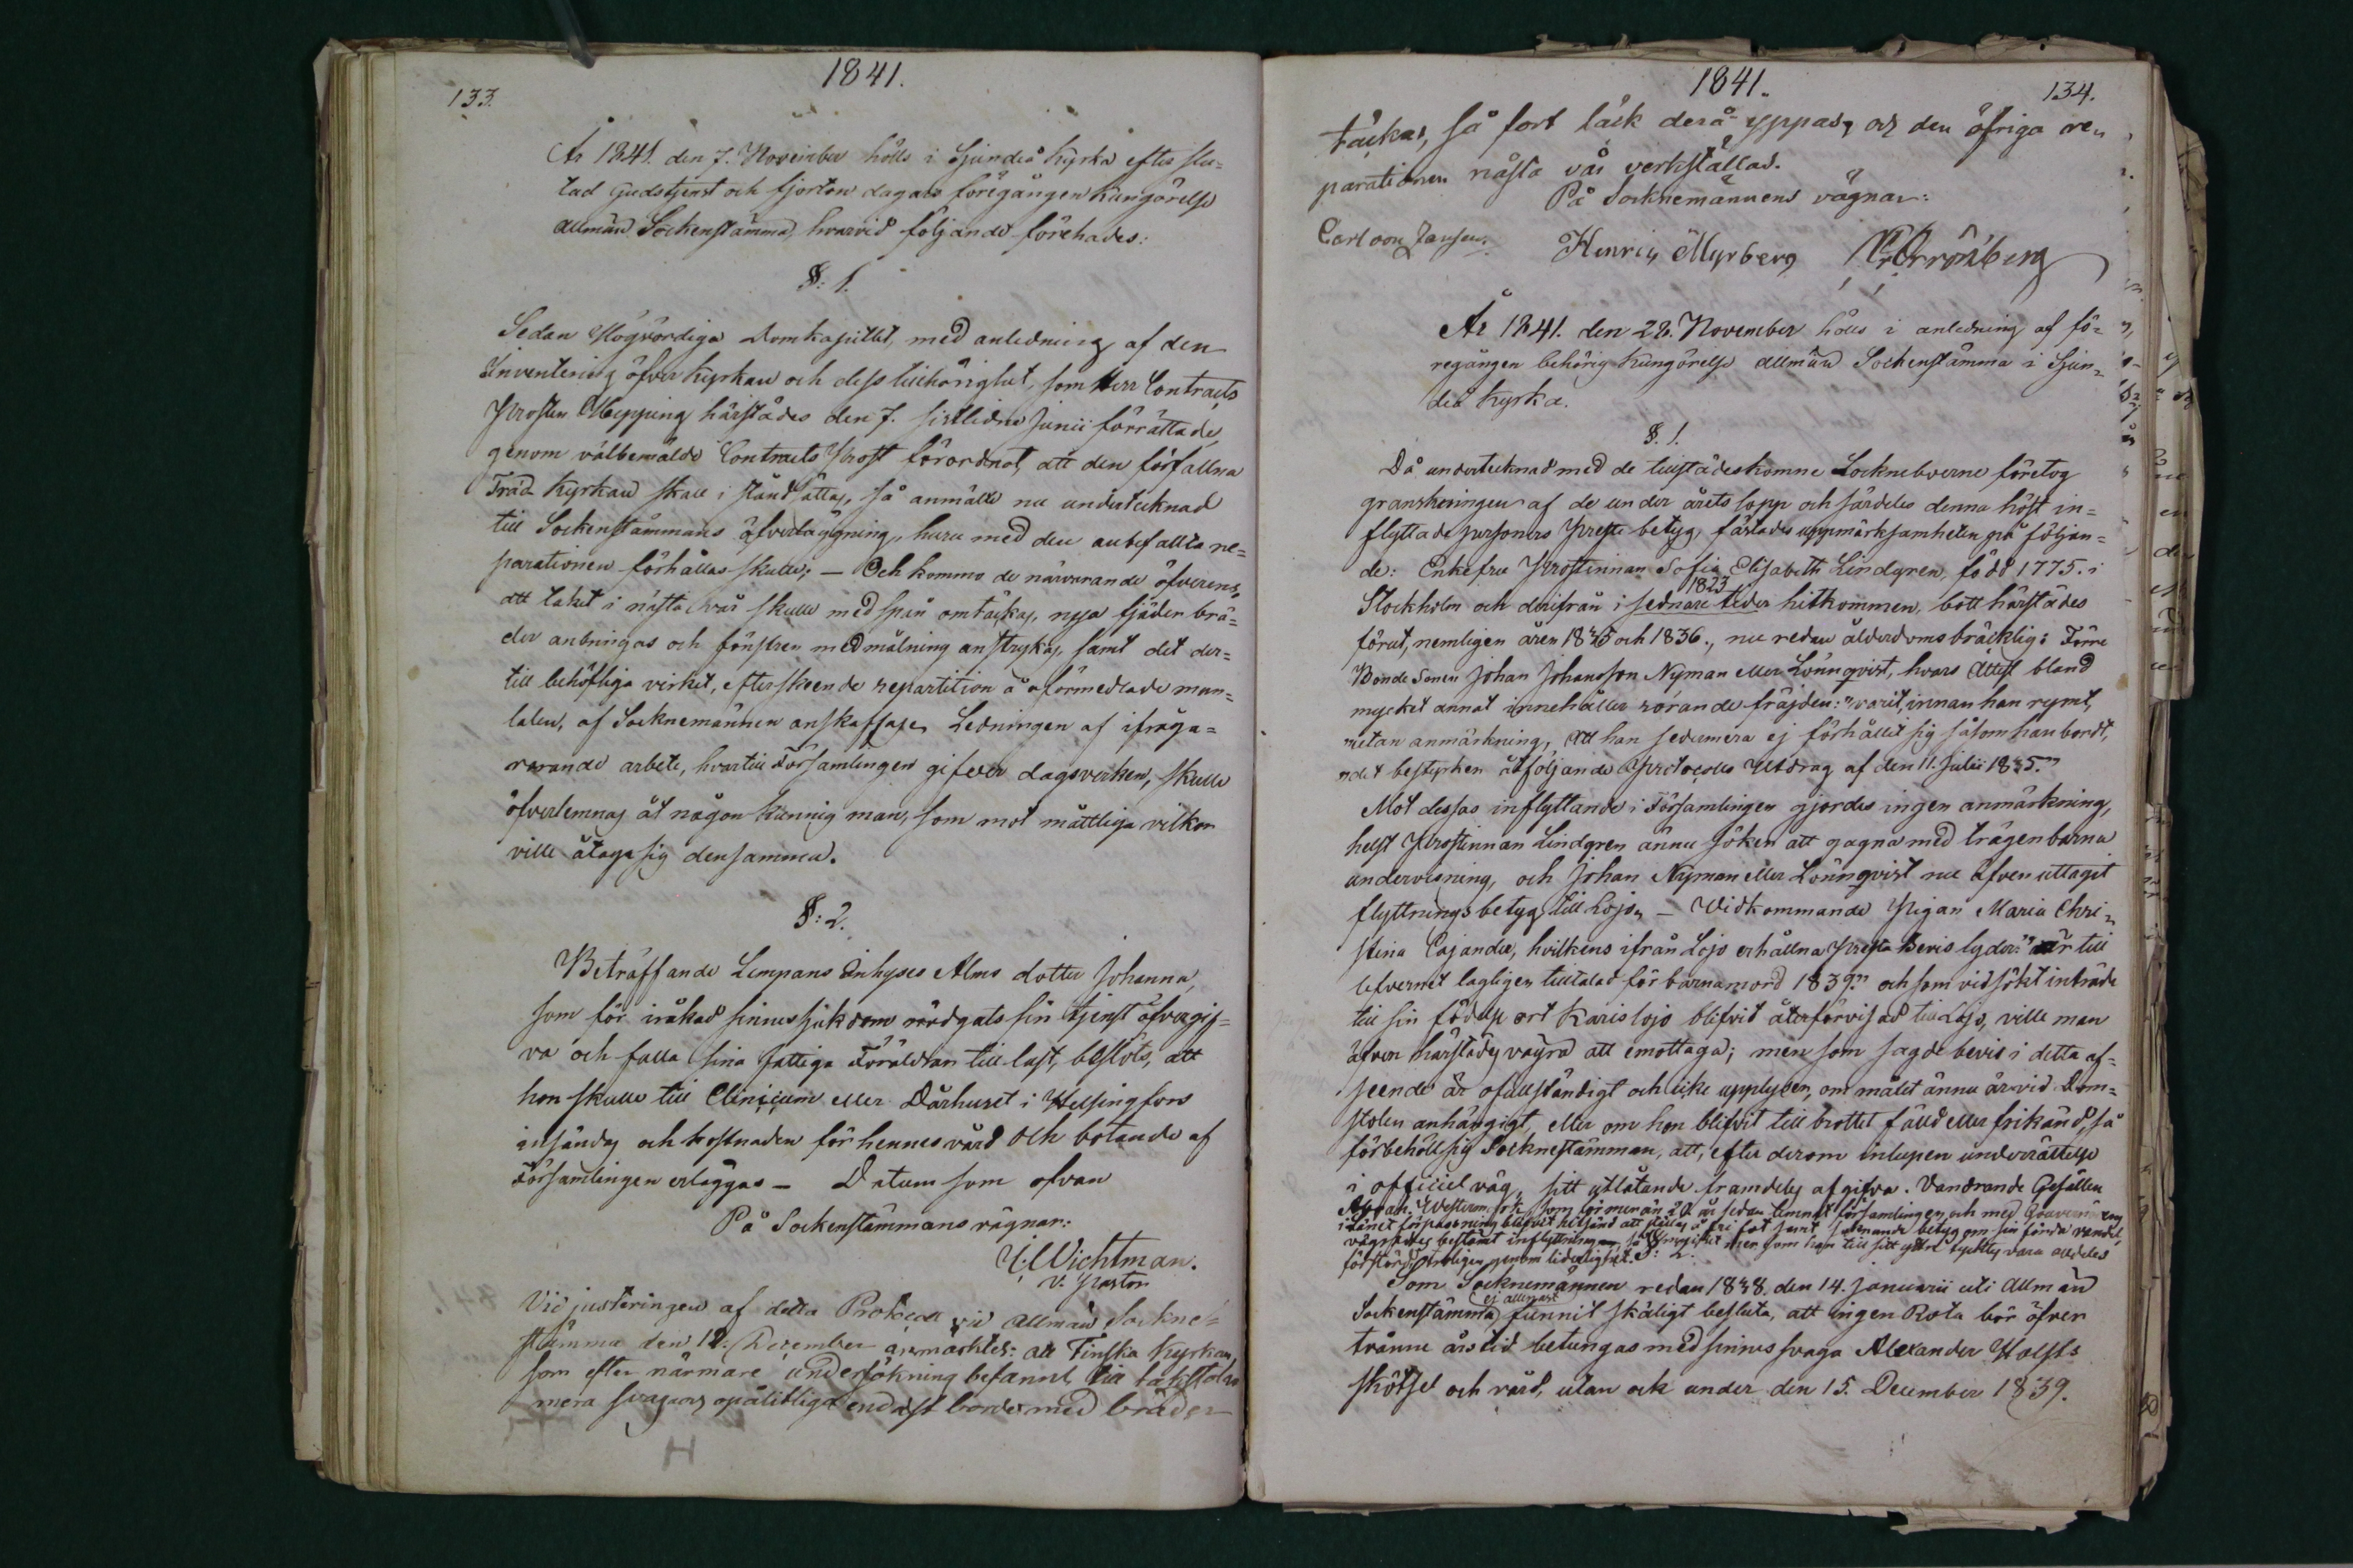 133.
1841.
År 1841. den 7. November hölls i Sjundeå Kyrka efter slu-
tad Gudstjenst och fjorton dagars föregången Kungörelse
allmän Sockenstämma, hvarvid följande förehades:
§: 1.
Sedan Högvördiga Domkapitlet, med anledning af den
Inventering öfver Kyrkan och dess tillhörighet, som Herr Contracts
Prosten Hepping härstädes den 7. sistledne Junii förrättade,
genom välbemälde Contracts Prost förordnat, att den förfallna
Träd Kyrkan skall i stånd sättas, så anmälte nu undertecknad
till Sockenstämmans öfverläggning, huru med den anbefallta re-
parationen förhållas skulle; — Och kommo de närvarande öfverens,
att taket i nästa vår skulle med spån omtäckas, nya fjäder brä-
der anbringas och fönstren med målning anstrykas, samt det der-
till behöfliga virket, efter skeende repartition å oförmedlade man-
talen, af Socknemännen anskaffas. Ledningen af ifråga-
varande arbete, hvartill Församlingen gifver dagsverken, skulle
öfverlemnas åt någon kunnig man, som mot måttliga vilkor
ville åtaga sig densamma.
§: 2.
Beträffande Lempans Inhyses Alms dotter Johanna,
som för iråkad sinnessjukdom nödgats sin tjenst öfvergif-
va och falla sina fattiga Föräldrar till last, beslöts, att
hon skulle till Clinicum eller Dårhuset i Helsingfors
insändas och kostnaden för hennes vård och botande af
Församlingen erläggas — Datum som ofvan
På Sockenstämmans vägnar:
Wichtman.
V. Pastor
Vid justeringen af detta Protocoll vid allmän Sockne-
stämma den 12. December anmärktes: att Finska Kyrkan,
som efter närmare undersökning befanns till takstolar
mera svag och opålitlig endast borde med bräder
1841.
134.
täckas, så fort läck derå yppas, och den öfriga re-
parationen nästa vår verkställas.
På Socknemännens vägnar:
Carl von Jansen. Henric Myrberg
År 1841. den 28. November hölls i anledning af fö-
regången behörig Kungörelse allmän Sockenstämma i Sjun-
deå Kyrka.
§. 1.
Då undertecknad med de tillstädeskomne Sockneboerne företog
granskningen af de under årets lopp och särdeles denna höst in-
flyttade personers Preste betyg, fästades uppmärksamheten på följan-
de: Enkefru Prostinnan Sofia Elisabeth Lindgren, född 1775. i
1823
Stockholm och derifrån i sednare tider hitkommen, bott härstädes
förut, nemligen åren 1835 och 1836., nu redan ålderdoms bräcklig: Förre
Bonde Sonen Johan Johansson Nyman eller Lönnqvist, hvars Attest bland
mycket annat innehåller rörande fräjden: "varit, innan han rymt,
utan anmärkning, att han sedermera ej förhållit sig såsom han bordt,
det bestyrken åtföljande Protocolls Utdrag af den 11. Julii 1835."
Mot dessas inflyttande i Församlingen gjordes ingen anmärkning,
helst Prostinnan Lindgren ännu söker att gagna med trägen barna
undervisning, och Johan Nyman eller Lönnqvist nu äfven uttagit
flyttningsbetyg till Lojo. — Vidkommande Pigan Maria Chri-
stina Cajander, hvilkens ifrån Lojo erhållna Preste Bevis lyder: "är till
lefvernet lagligen tilltalad för barnamord 1839." och som vid sökt inträde
till sin födelse ort Karislojo blifvit återförvisad till Lojo, ville man
äfven härstädes vägra att emottaga; men som sagde bevis i detta af-
seende är ofullständigt och icke upplyser, om målet ännu är vid Dom-
stolen anhängigt, eller om hon blifvit till brottet fälld eller frikänd, så
förbehöll sig Socknestämman, att, efter derom inlupen underrättelse
i officiel väg, sitt utlåtande framdeles afgifva. Vandrande Gesällen
som för mer än 20 år sedan lemnat församlingen och med
i Länet förpassning blifvit hitsänd att ställas å fri fot samt betyg om sin förda vandel,
vägrades bestämt inflyttning, som han till sitt yttre tycktes vara alldeles
förstörd troligen genom liderlighet. §: 2.
Som Socknemännen redan 1838. den 14. Januarii uti Allmän
ej allenast
Sockenstämma funnit skäligt besluta, att ingen Rota bör öfver
tvänne års tid betungas med sinnessvaga Alexander Holsts
skötsel och vård, utan ock under den 15. December 1839.